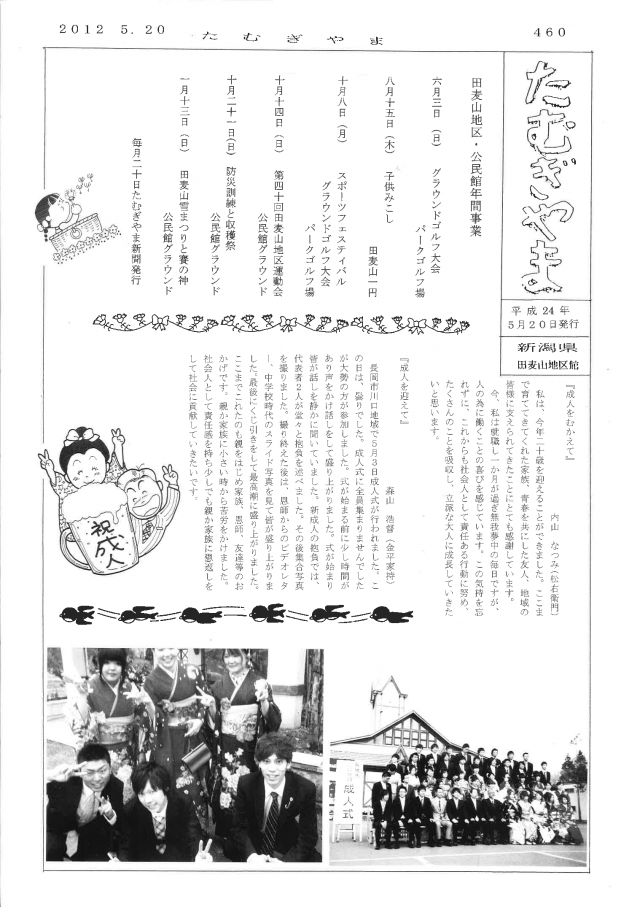 2012 5.20
たむぎやま
460
たむぎやま
平成24年
5月20日発行
新潟県
田麦山地区館
田麦山地区・公民館年間事業
六月三日（日）　グラウンドゴルフ大会
パークゴルフ場
八月十五日（木）　子供みこし
田麦山一円
十月八日（月）　スポーツフェスティバル
グラウンドゴルフ大会
パークゴルフ場
十月十四日（日）　第四十回田麦山地区運動会
公民館グラウンド
十月二十一日(日)　防災訓練と収穫祭
公民館グラウンド
一月十三日（日）　田麦山雪まつりと賽の神
公民館グラウンド
毎月二十日たむぎやま新聞発行
『成人をむかえて』
内山　なつみ(松右衛門)
私は、今年二十歳を迎えることができました。ここま
で育ててきてくれた家族、青春を共にした友人、地域の
皆様に支えられてきたことにとても感謝しています。
今、私は就職し一か月が過ぎ無我夢中の毎日ですが、
人の為に働くことの喜びを感じています。この気持を忘
れずに、これからも社会人として責任ある行動に努め、
たくさんのことを吸収し、立派な大人に成長していきた
いと思います。
『成人を迎えて』
森山　浩督(金平家持)
長岡市川口地域で５月３日成人式が行われました。こ
の日は、曇りでした。成人式に全員集まりませんでした
が大勢の方が参加しました。式が始まる前に少し時間が
あり声をかけ話しをして盛り上がりました。式が始まり
皆が話しを静かに聞いていました。新成人の抱負では、
代表者２人が堂々と抱負を述べました。その後集合写真
を撮りました。撮り終えた後は、恩師からのビデオレタ
ー、中学校時代のスライド写真を見て皆が盛り上がりま
した。最後にくじ引きをして最高潮に盛り上がりました。
ここまでこれたのも親をはじめ家族、恩師、友達等のお
かげです。親か家族に小さい時から苦労をかけました。
社会人として責任感を持ち少しでも親か家族に恩返しを
して社会に貢献していきたいです。
祝
成人
成人式